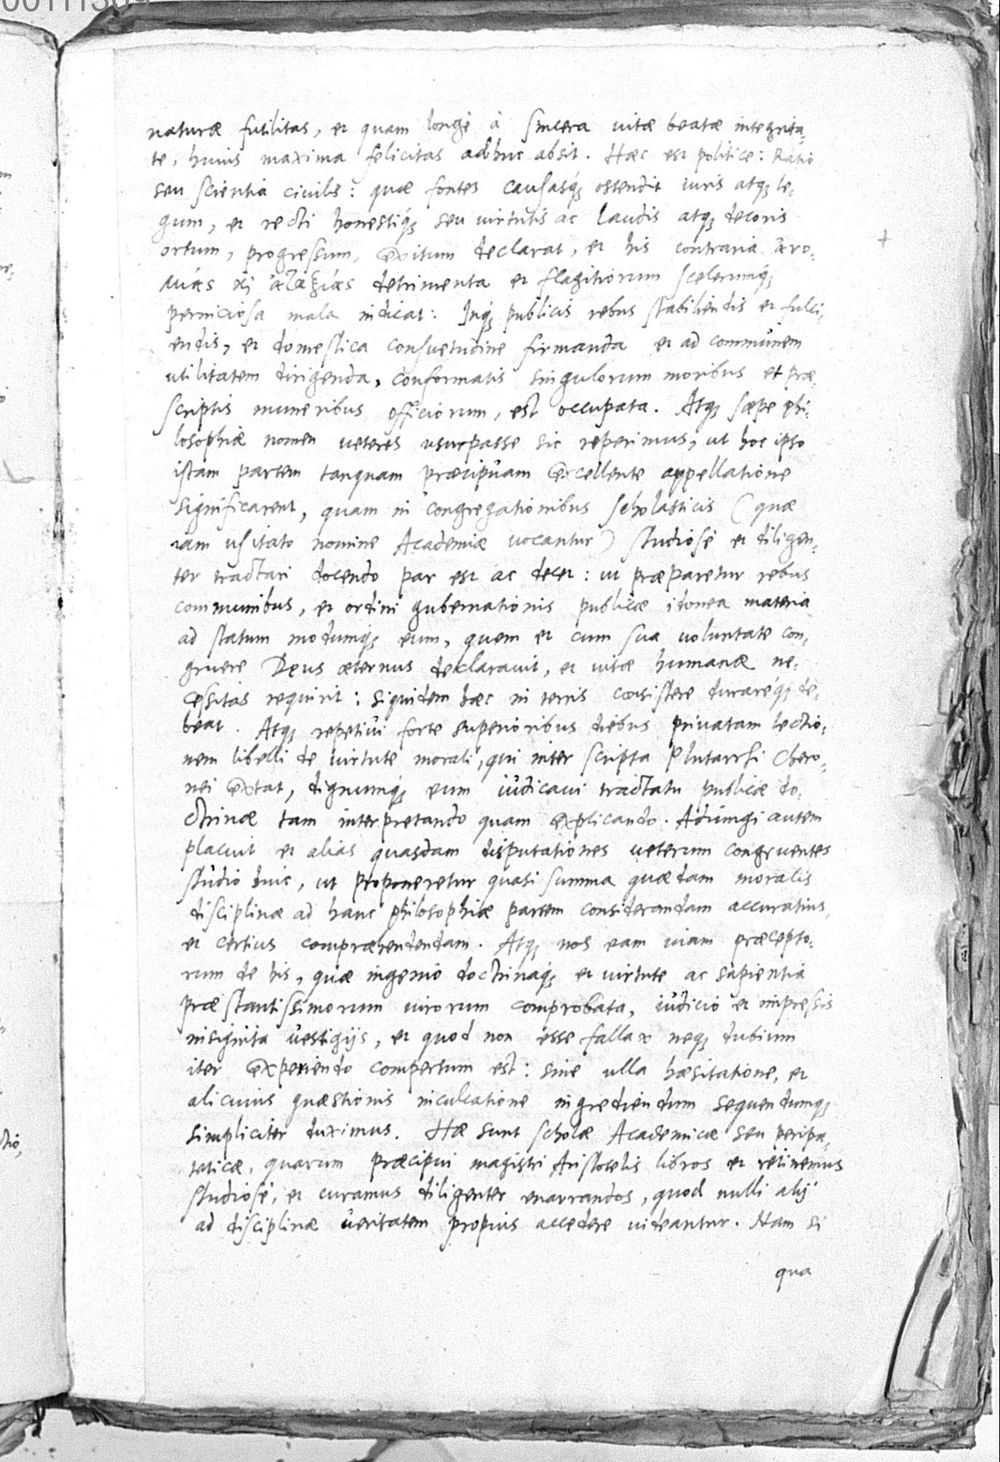 naturæ futilitas, et quam longè à sincera vitæ beatæ integrita-
te, huius maxima felicitas adhuc absit. Hæc est politice: Ratio
seu scientia civilis: quæ fontes causasq́; ostendit iuris atq; le-
gum, et recti honestiq́; seu virtutis ac laudis atq; decoris
ortum, progressum, exitum declarat, et his contraria ἀνο-
μίας καὶ ἀταξίας detrimenta et flagitiorum scelerumq́;
perniciosa mala indicat: Inq́; publicis rebus stabiliendis et fulci-
endis, et domestica consuetudine firmanda et ad communem
utilitatem dirigenda, conformatis singulorum moribus et præ
scriptis muneribus officiorum, est occupata. Atq; sæpe phi-
losophiæ nomen veteres usurpasse sic reperimus, ut hoc ipso
istam partem tanquam præcipuam excellente appellatione
significarent, quam in congregationibus scholasticis (quæ
iam usitato nomine Academiæ vocantur) studiosè et diligen-
ter tractari docendo par est ac decet: ut præparetur rebus
communibus, et ordini gubernationis publicæ idonea materia
ad statum modumq́; eum, quem et cum sua voluntate con-
gruere Deus æternus declaravit, et vitæ humanæ ne-
cessitas requirit: siquidem hæc in terris consistere durareq́; de-
beat. Atq; repetivi forte superioribus diebus privatam lectio-
nem libelli de virtute morali, qui inter scripta Plutarchi Chero-
nei extat, dignumq́; eum iudicavi tractatu publicæ do-
ctrinæ tam interpretando quam explicando. Adiungi autem
placuit et alias quasdam disputationes veterum congruentes
studio huic, ut proponeretur quasi summa quædam moralis
disciplinæ ad hanc philosophiæ partem considerandam accuratius,
et certius compræhendendam. Atq; nos eam viam præcepto-
rum de his, quæ ingenio doctrinaq́; et virtute ac sapientia
præstantissimorum virorum comprobata, iudicio et impressis
insignita vestigijs, et quod non esse fallax neq; dubium
iter experiendo compertum est: sine ulla hæsitatione, et
alicuius quæstionis inculcatione ingrediendum sequendumq́;
simpliciter duximus. Hæ sunt scholæ Academicæ seu peripa-
teticæ, quarum præcipui magistri Aristotelis libros et retinemus
studiosè, et curamus diligenter enarrandos, quod nulli alij
ad disciplinæ veritatem propius accedere videantur. Nam si
qua